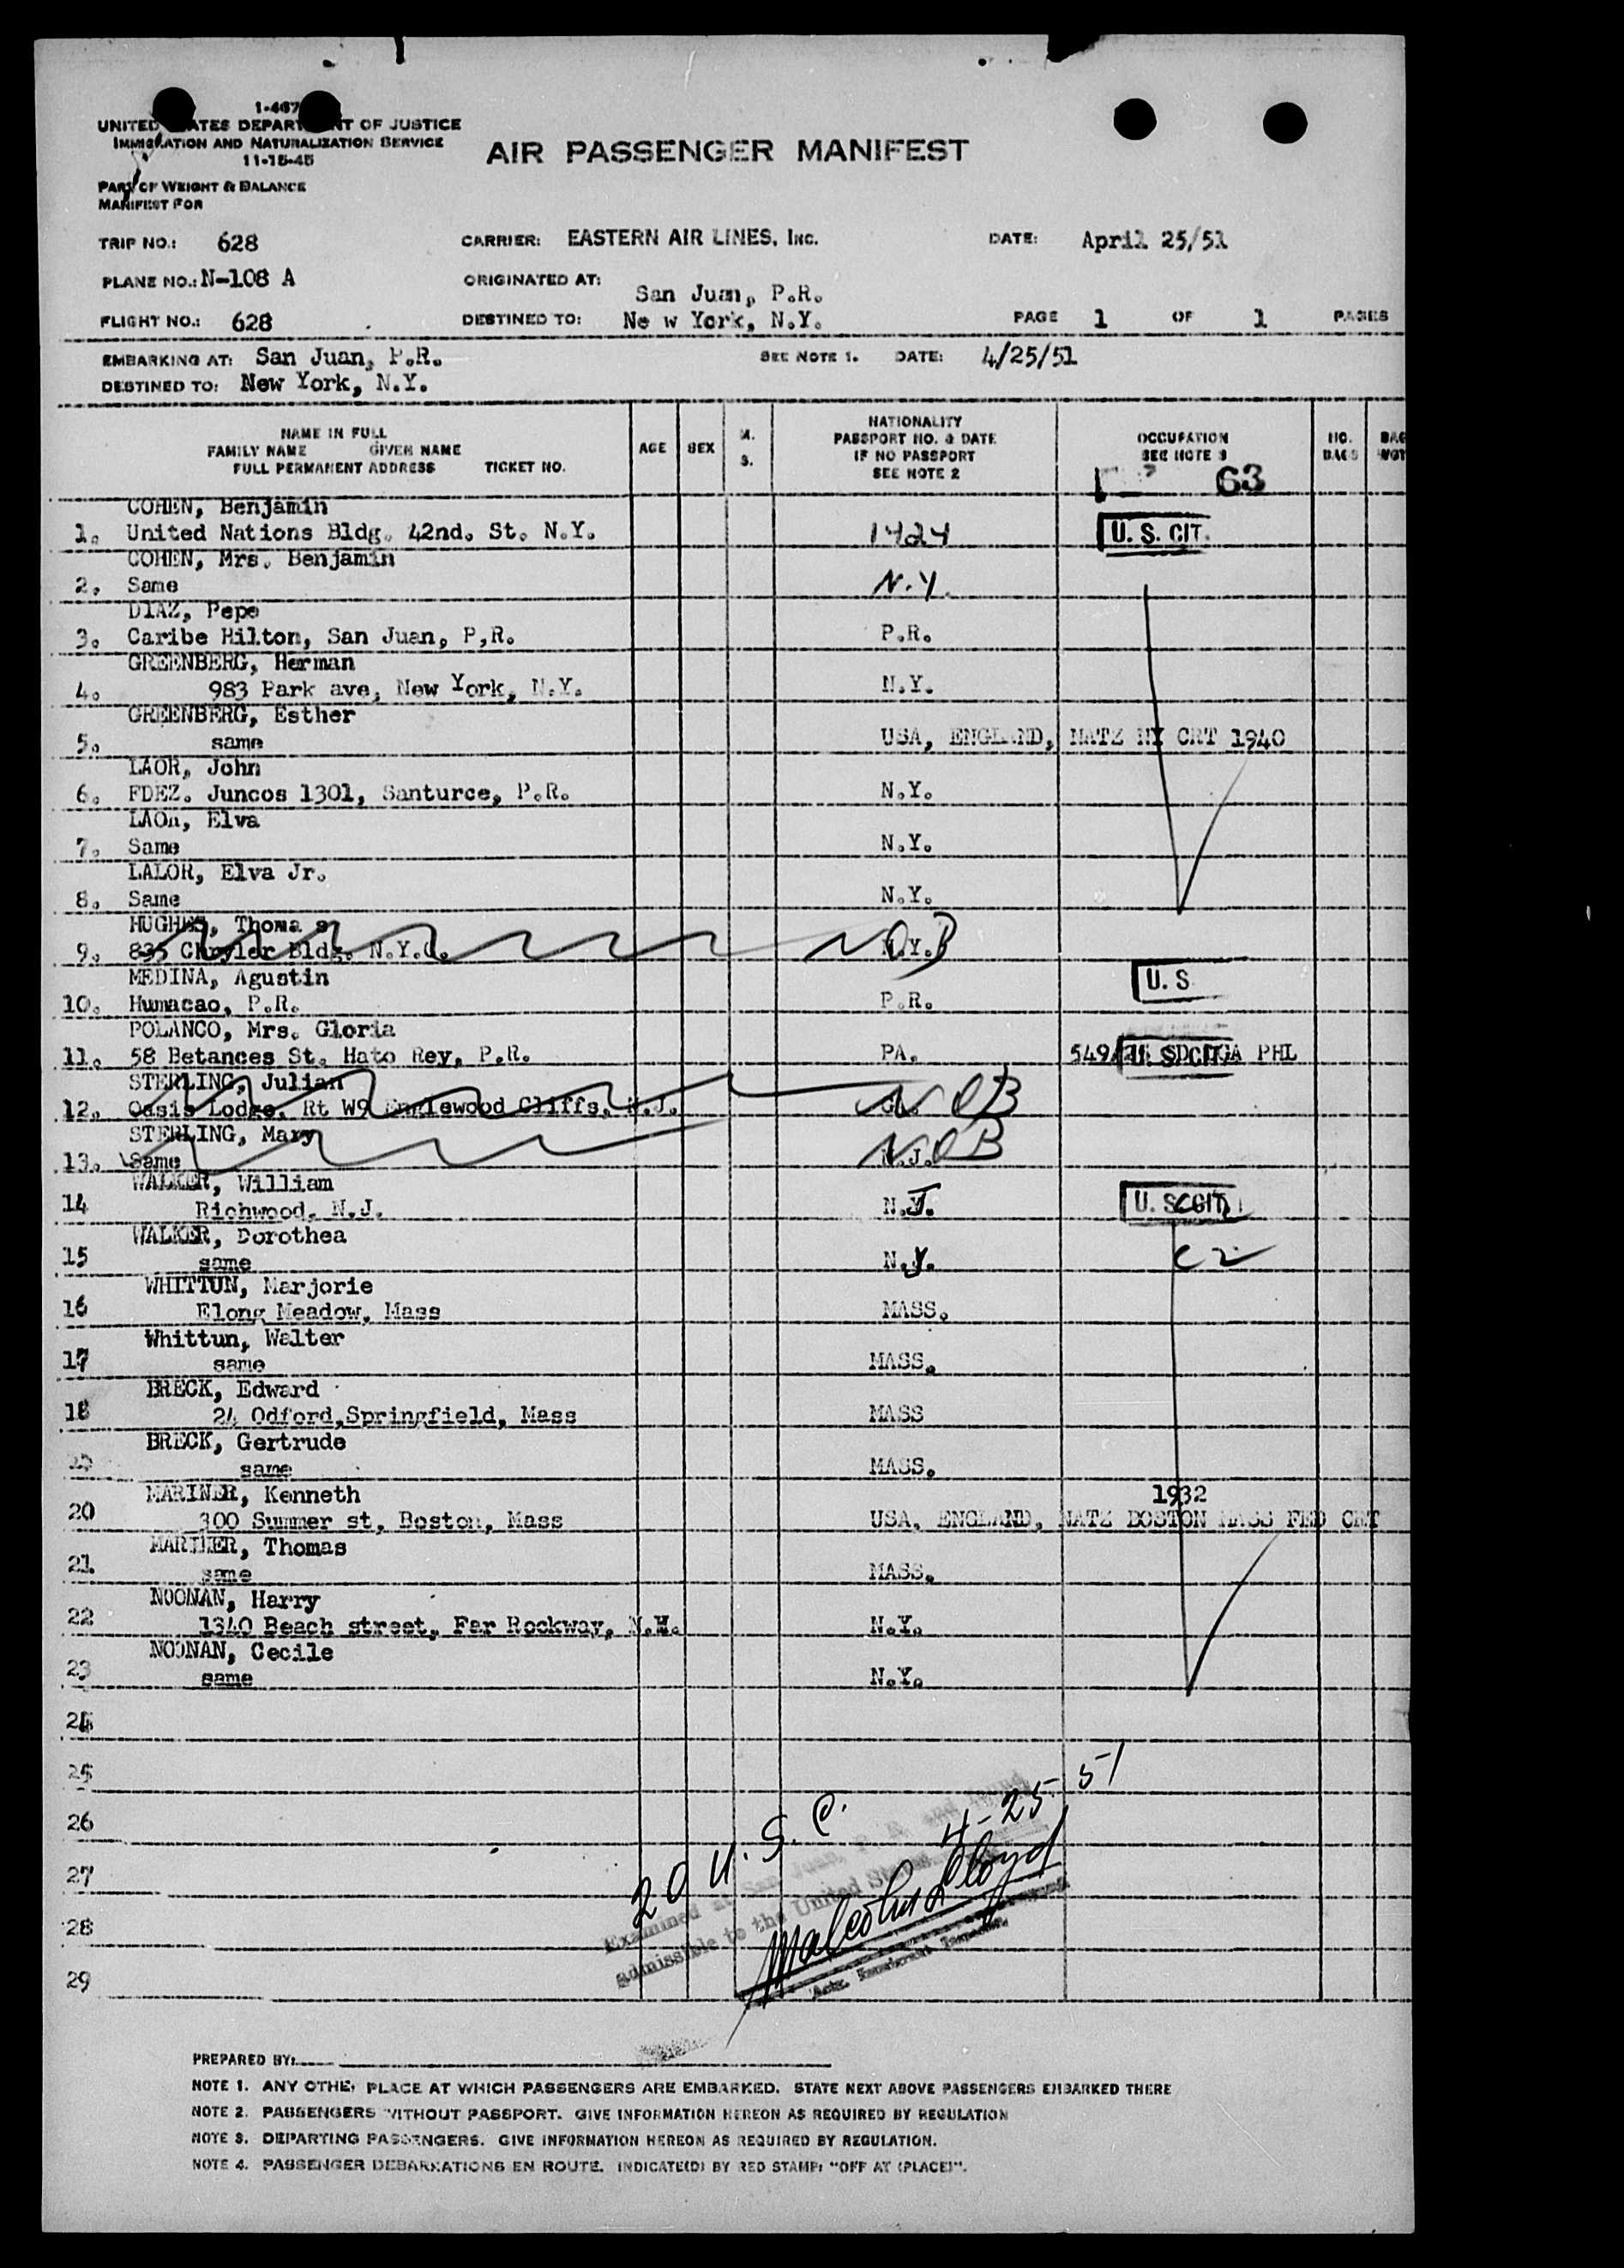 1-467
UNITED STATES DEPARTMENT OF JUSTICE
IMMIGRATION AND NATURALIZATION SERVICE
11-15-45
AIR PASSENGER MANIFEST
PART OF WEIGHT & BALANCE
MANIFEST FOR
TRIP NO.: 628 CARRIER: EASTERN AIR LINES, INC. DATE: April 25/51
PLANE NO.: N-108 A ORIGINATED AT: San Juan, P.R.
FLIGHT NO.: 628 DESTINED TO: Ne w York, N.Y. PAGE 1 OF 1 PAGES
EMBARKING AT: San Juan, P.R. SEE NOTE 1. DATE: 4/25/51
DESTINED TO: New York, N.Y.
NAME IN FULL
FAMILY NAME GIVEN NAME
FULL PERMANENT ADDRESS TICKET NO.
AGE
SEX
M.
S.
NATIONALITY
PASSPORT NO. & DATE
IF NO PASSPORT
SEE NOTE 2
OCCUPATION
SEE NOTE 3
63
NO.
BAGS
BAG
WGT
COHEN, Benjamin
1. United Nations Bldg. 42nd. St. N.Y. 1424 U. S. CIT.
COHEN, Mrs. Benjamin
2. Same N.Y.
DIAZ, Pepe
3. Caribe Hilton, San Juan, P,R. P.R.
GREENBERG, Herman
4. 983 Park ave, New York, N.Y. N.Y.
GREENBERG, Esther
5. same USA, ENGLAND, NATZ NY CRT 1940
LAOR, John
6. FDEZ. Juncos 1301, Santurce, P.R. N.Y.
LAOR, Elva
7. Same N.Y.
LALOR, Elva Jr.
8. Same N.Y.
HUGHES, Thoma s
9. 835 Chryler Bldg. N.Y.C. N.Y. NOB
MEDINA, Agustin
10. Humacao, P.R. P.R. U. S
POLANCO, Mrs. Gloria
11. 58 Betances St. Hato Rey, P.R. PA. 549 U. S. CIT. PHL
STERLING, Julian
12. Oasis Lodge, Rt W9 Englewood Cliffs, N.J. NOB
STERLING, Mary
13. Same N.J. NOB
WALKER, William
14 Richwood, N.J. N.J. U. S. CIT
WALKER, Dorothea
15 same N.J.
WHITTUN, Marjorie
16 Elong Meadow, Mass MASS.
Whittun, Walter
17 same MASS.
BRECK, Edward
18 24 Odford,Springfield, Mass MASS
BRECK, Gertrude
same MASS.
MARINER, Kenneth 1932
20 300 Summer st, Boston, Mass USA, ENGLAND, NATZ BOSTON MASS FED CRT
MARINER, Thomas
21 same MASS.
NOONAN, Harry
22 1340 Beach street, Far Rockway, N.H. N.Y.
NOONAN, Cecile
23 same N.Y.
24
25
26
27
28
29
20 U.S.C. 4-25-51
Examined at San Juan, P. R. and found
admissible to the United States
Malcolm Lloyd
PREPARED BY:
NOTE 1. ANY OTHER PLACE AT WHICH PASSENGERS ARE EMBARKED. STATE NEXT ABOVE PASSENGERS EMBARKED THERE
NOTE 2. PASSENGERS WITHOUT PASSPORT. GIVE INFORMATION HEREON AS REQUIRED BY REGULATION
NOTE 3. DEPARTING PASSENGERS. GIVE INFORMATION HEREON AS REQUIRED BY REGULATION.
NOTE 4. PASSENGER DEBARKATIONS EN ROUTE. INDICATE(D) BY RED STAMP: "OFF AT (PLACE)".